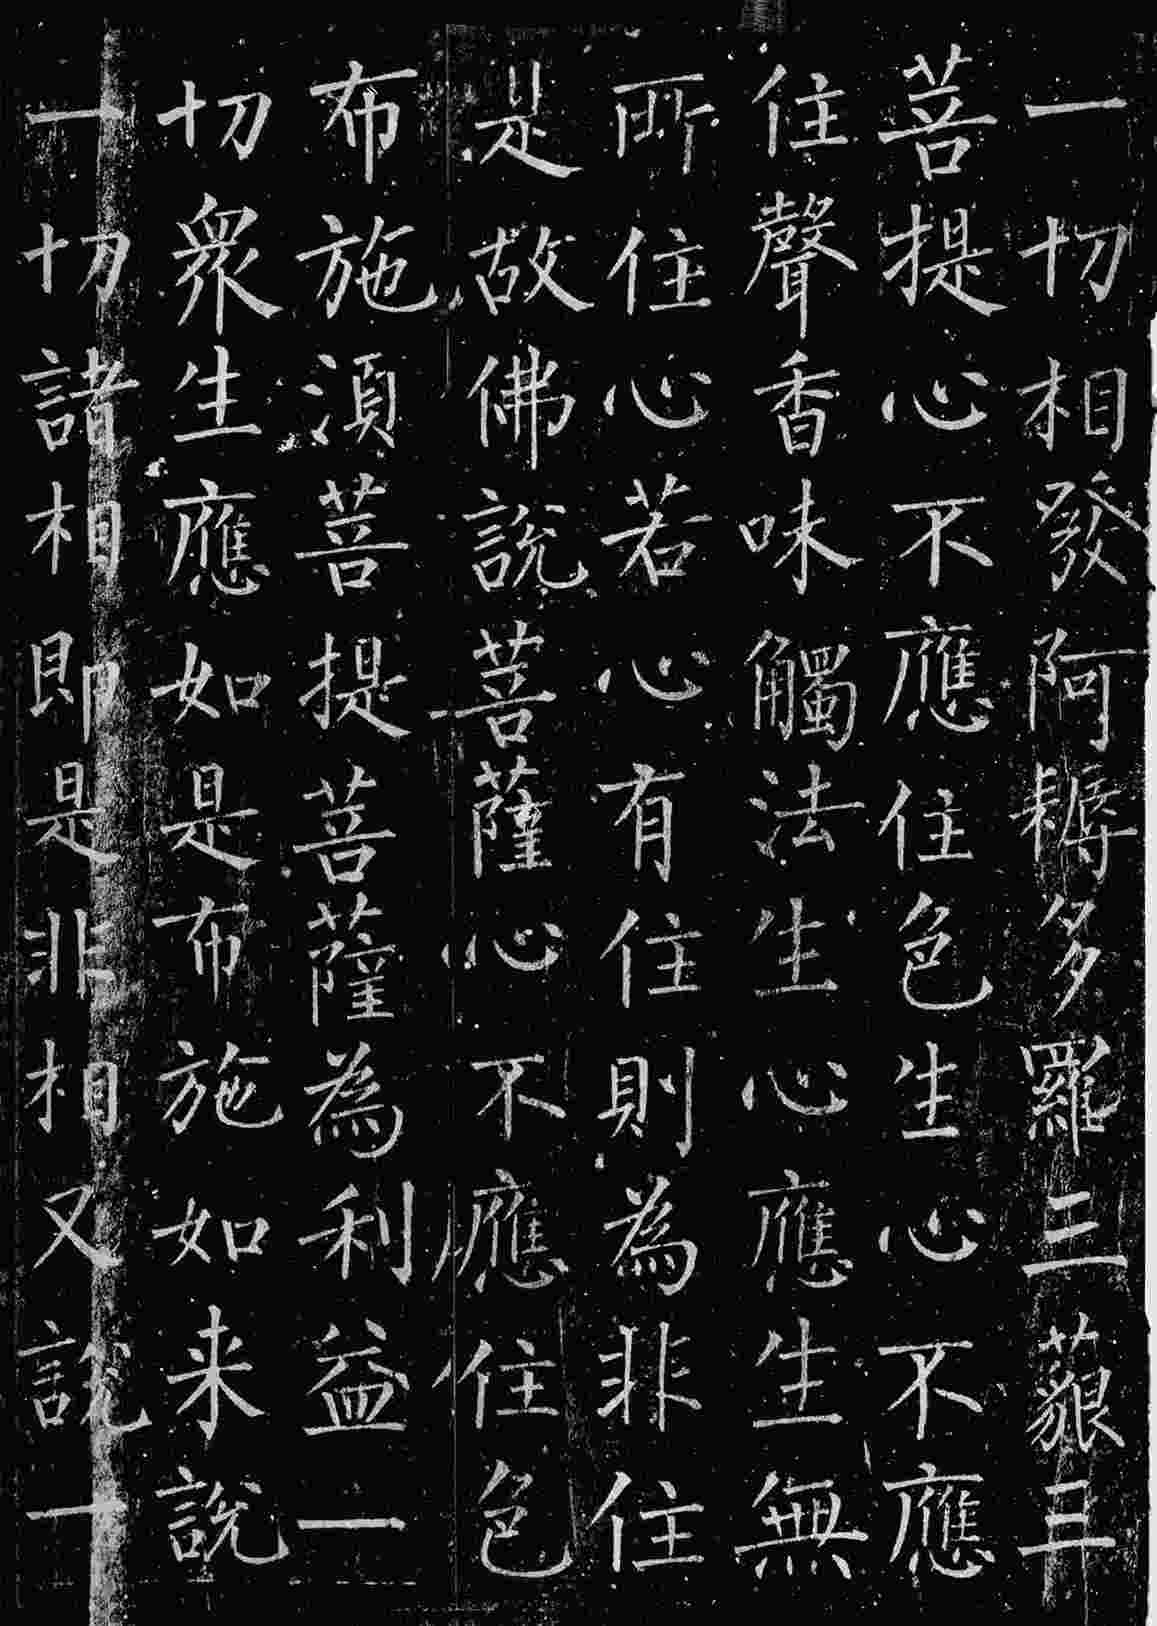 一切相發阿耨多羅三藐三
菩提心不應住色生心不應
住聲香味觸法生心應生無
所住心若心有住則為非住
是故佛說菩薩心不應住色
布施湏菩提菩薩為利益一
切眾生應如是布施如来說
一切諸相即是非相又說一